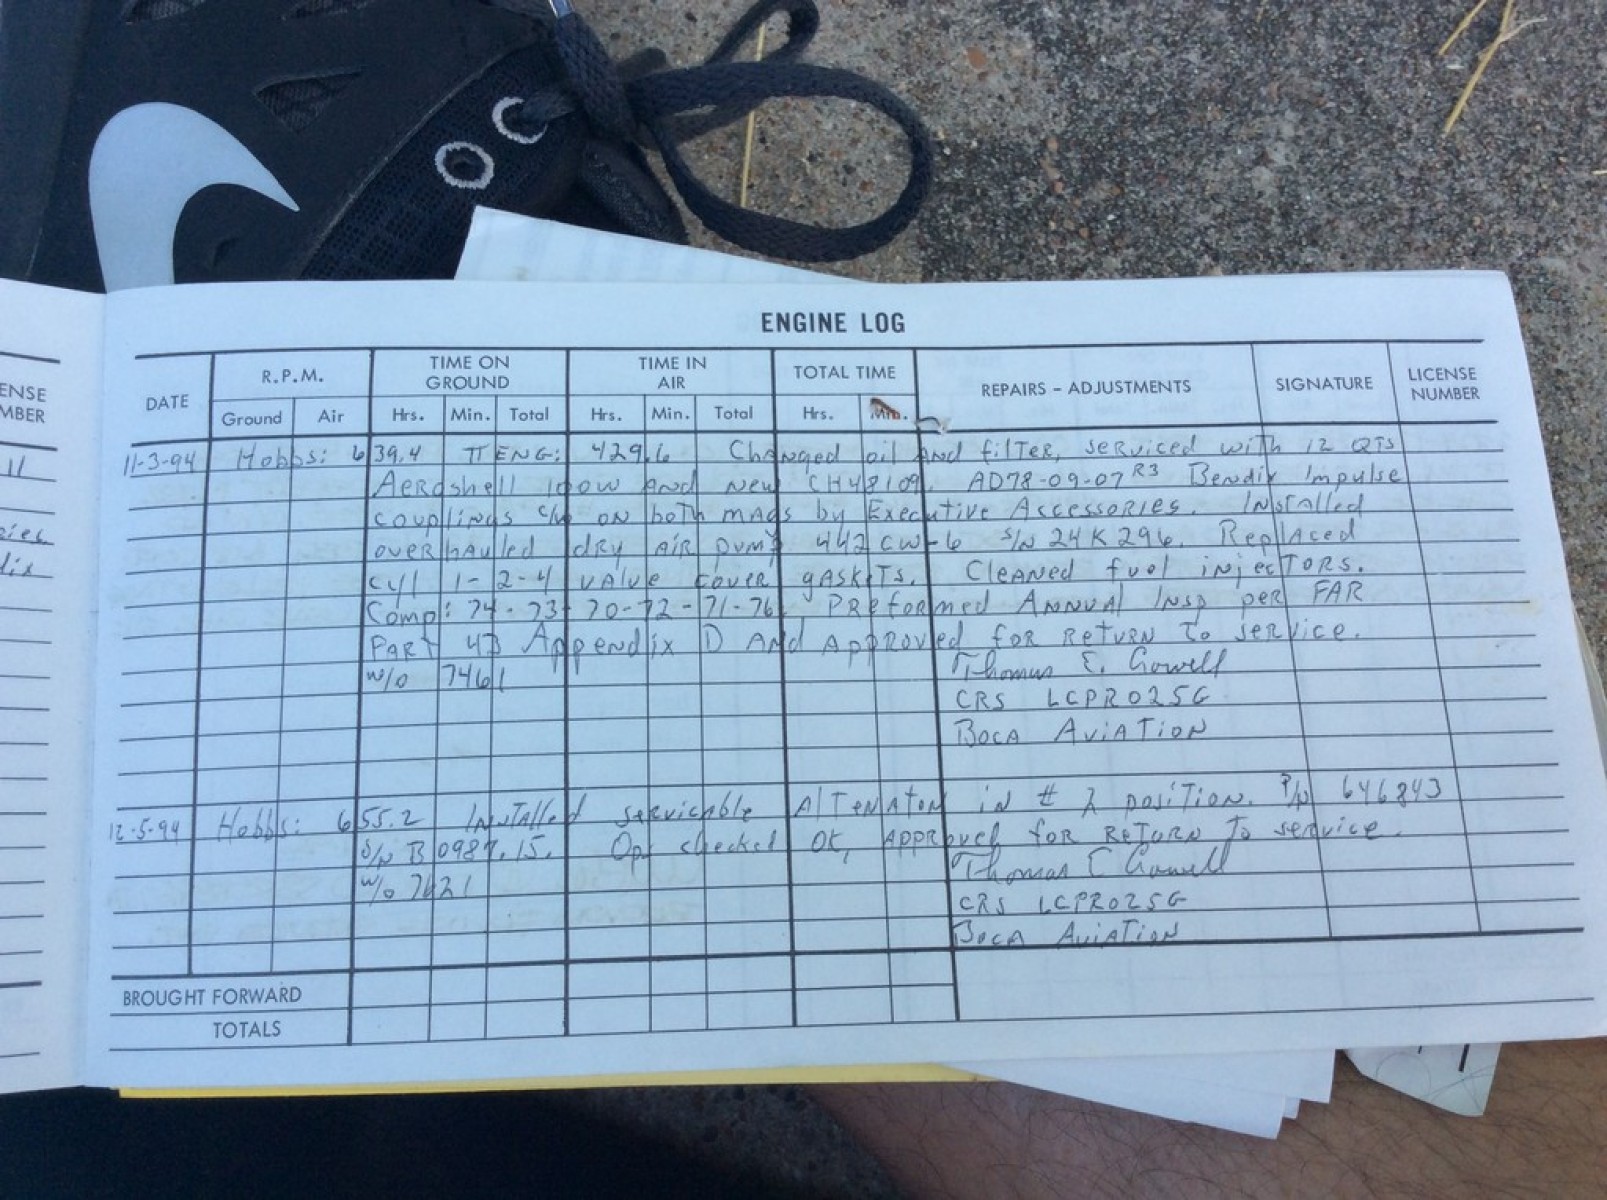 ENGINE LOG
DATE R.P.M. TIME ON GROUND TIME IN AIR TOTAL TIME REPAIRS - ADJUSTMENTS SIGNATURE LICENSE NUMBER
Ground Air Hrs. Min. Total Hrs. Min. Total Hrs. Min.
11-3-94 Hobbs: 639.4 TT ENG: 429.6 Changed oil and filter, serviced with 12 QTS
Aeroshell 100W and new CH48109. AD78-09-07 R3 Bendix Impulse
couplings c/w on both mags by Executive Accessories. Installed
overhauled dry air pump 442CW-6 S/N 24K296. Replaced
cyl 1-2-4 valve cover gaskets. Cleaned fuel injectors.
Comp: 74-73-70-72-71-76 Preformed Annual Insp per FAR
Part 43 Appendix D and approved for return to service.
W/O 7461 Thomas E. Gowell
CRS LCPR025G
Boca Aviation
12-5-94 Hobbs: 655.2 Installed servicable Altenator in # 2 position. P/N 646843
S/N B 0987.15. Ops checked OK, approved for return to service.
W/O 7621 Thomas E Gowell
CRS LCPR025G
Boca Aviation
BROUGHT FORWARD
TOTALS
ENSE
MBER
11